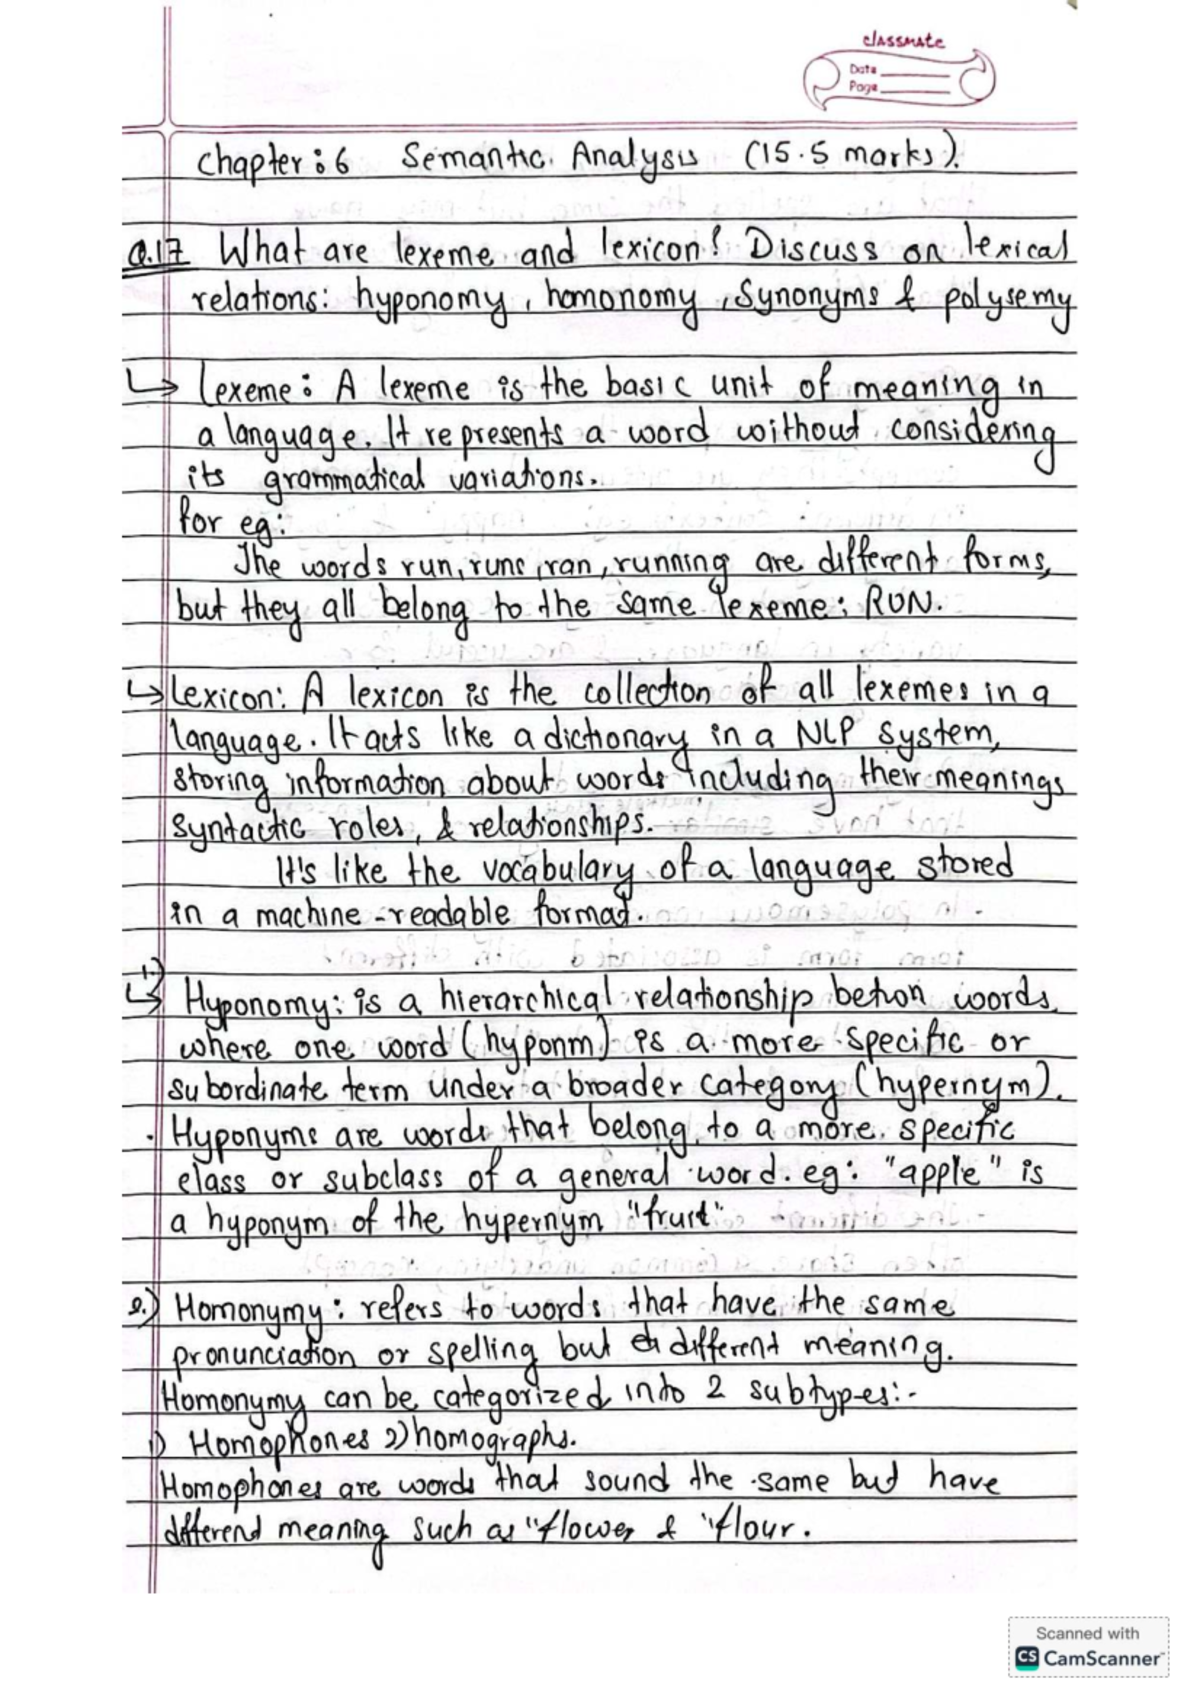 classmate
Date
Page
Chapter: 6 Semantic Analysis (15.5 marks).
Q.17 What are lexeme and lexicon? Discuss on lexical
relations: hyponomy, homonomy, Synonyms & polysemy
Lexeme: A lexeme is the basic unit of meaning in
a language. It represents a word without considering
its grammatical variations.
for eg:
The words run, runs, ran, running are different forms,
but they all belong to the same lexeme: RUN.
Lexicon: A lexicon is the collection of all lexemes in a
language. It acts like a dictionary in a NLP system,
storing information about words including their meanings
syntactic roles, & relationships.
It's like the vocabulary of a language stored
in a machine-readable format.
1.)
Hyponomy: is a hierarchical relationship betwn words
where one word (hyponm) is a more specific or
subordinate term under a broader category (hypernym).
. Hyponyms are words that belong to a more specific
class or subclass of a general word. eg: "apple" is
a hyponym of the hypernym "fruit"
2.) Homonymy: refers to words that have the same
pronunciation or spelling but different meaning.
Homonymy can be categorized into 2 subtypes:-
1) Homophones 2) homographs.
Homophones are words that sound the same but have
different meaning such as "flower & "flour.
Scanned with
CS CamScanner